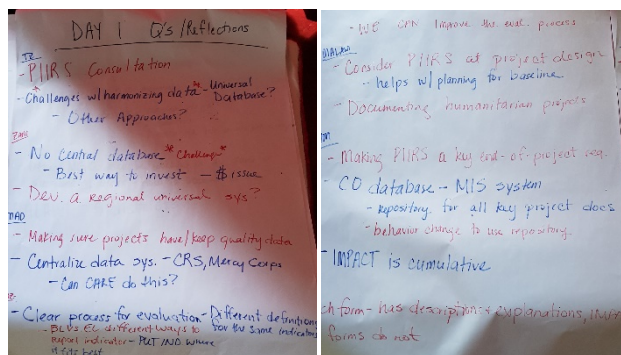 DAY 1 Q's/Reflections
- PIIRS Consultation
- Challenges w/harmonizing data* - Universal Database?
- Other Approaches?
- No central database * challenge*
- Best way to invest - $ issue
- Dev. a regional universal sys?
MAD
- Making sure projects have/keep quality data
- Centralize data sys. - CRS, Mercy Corps
- Can CARE do this?
- Clear process for evaluation - Different definitions for the same indicators
- BL vs EL different ways to
Report indicator - PUT IND where
it fits best
- WE CAN Improve the eval. process
MALAWI
- Consider PIIRS at project design
- helps w/ planning for baseline
- Documenting humanitarian projects
- Making PIIRS a key end-of-project req.
- CO database - MIS system
- repository for all key project docs
- behavior change to use repository.
- IMPACT is cumulative
form - has descriptions + explanations,
forms do not